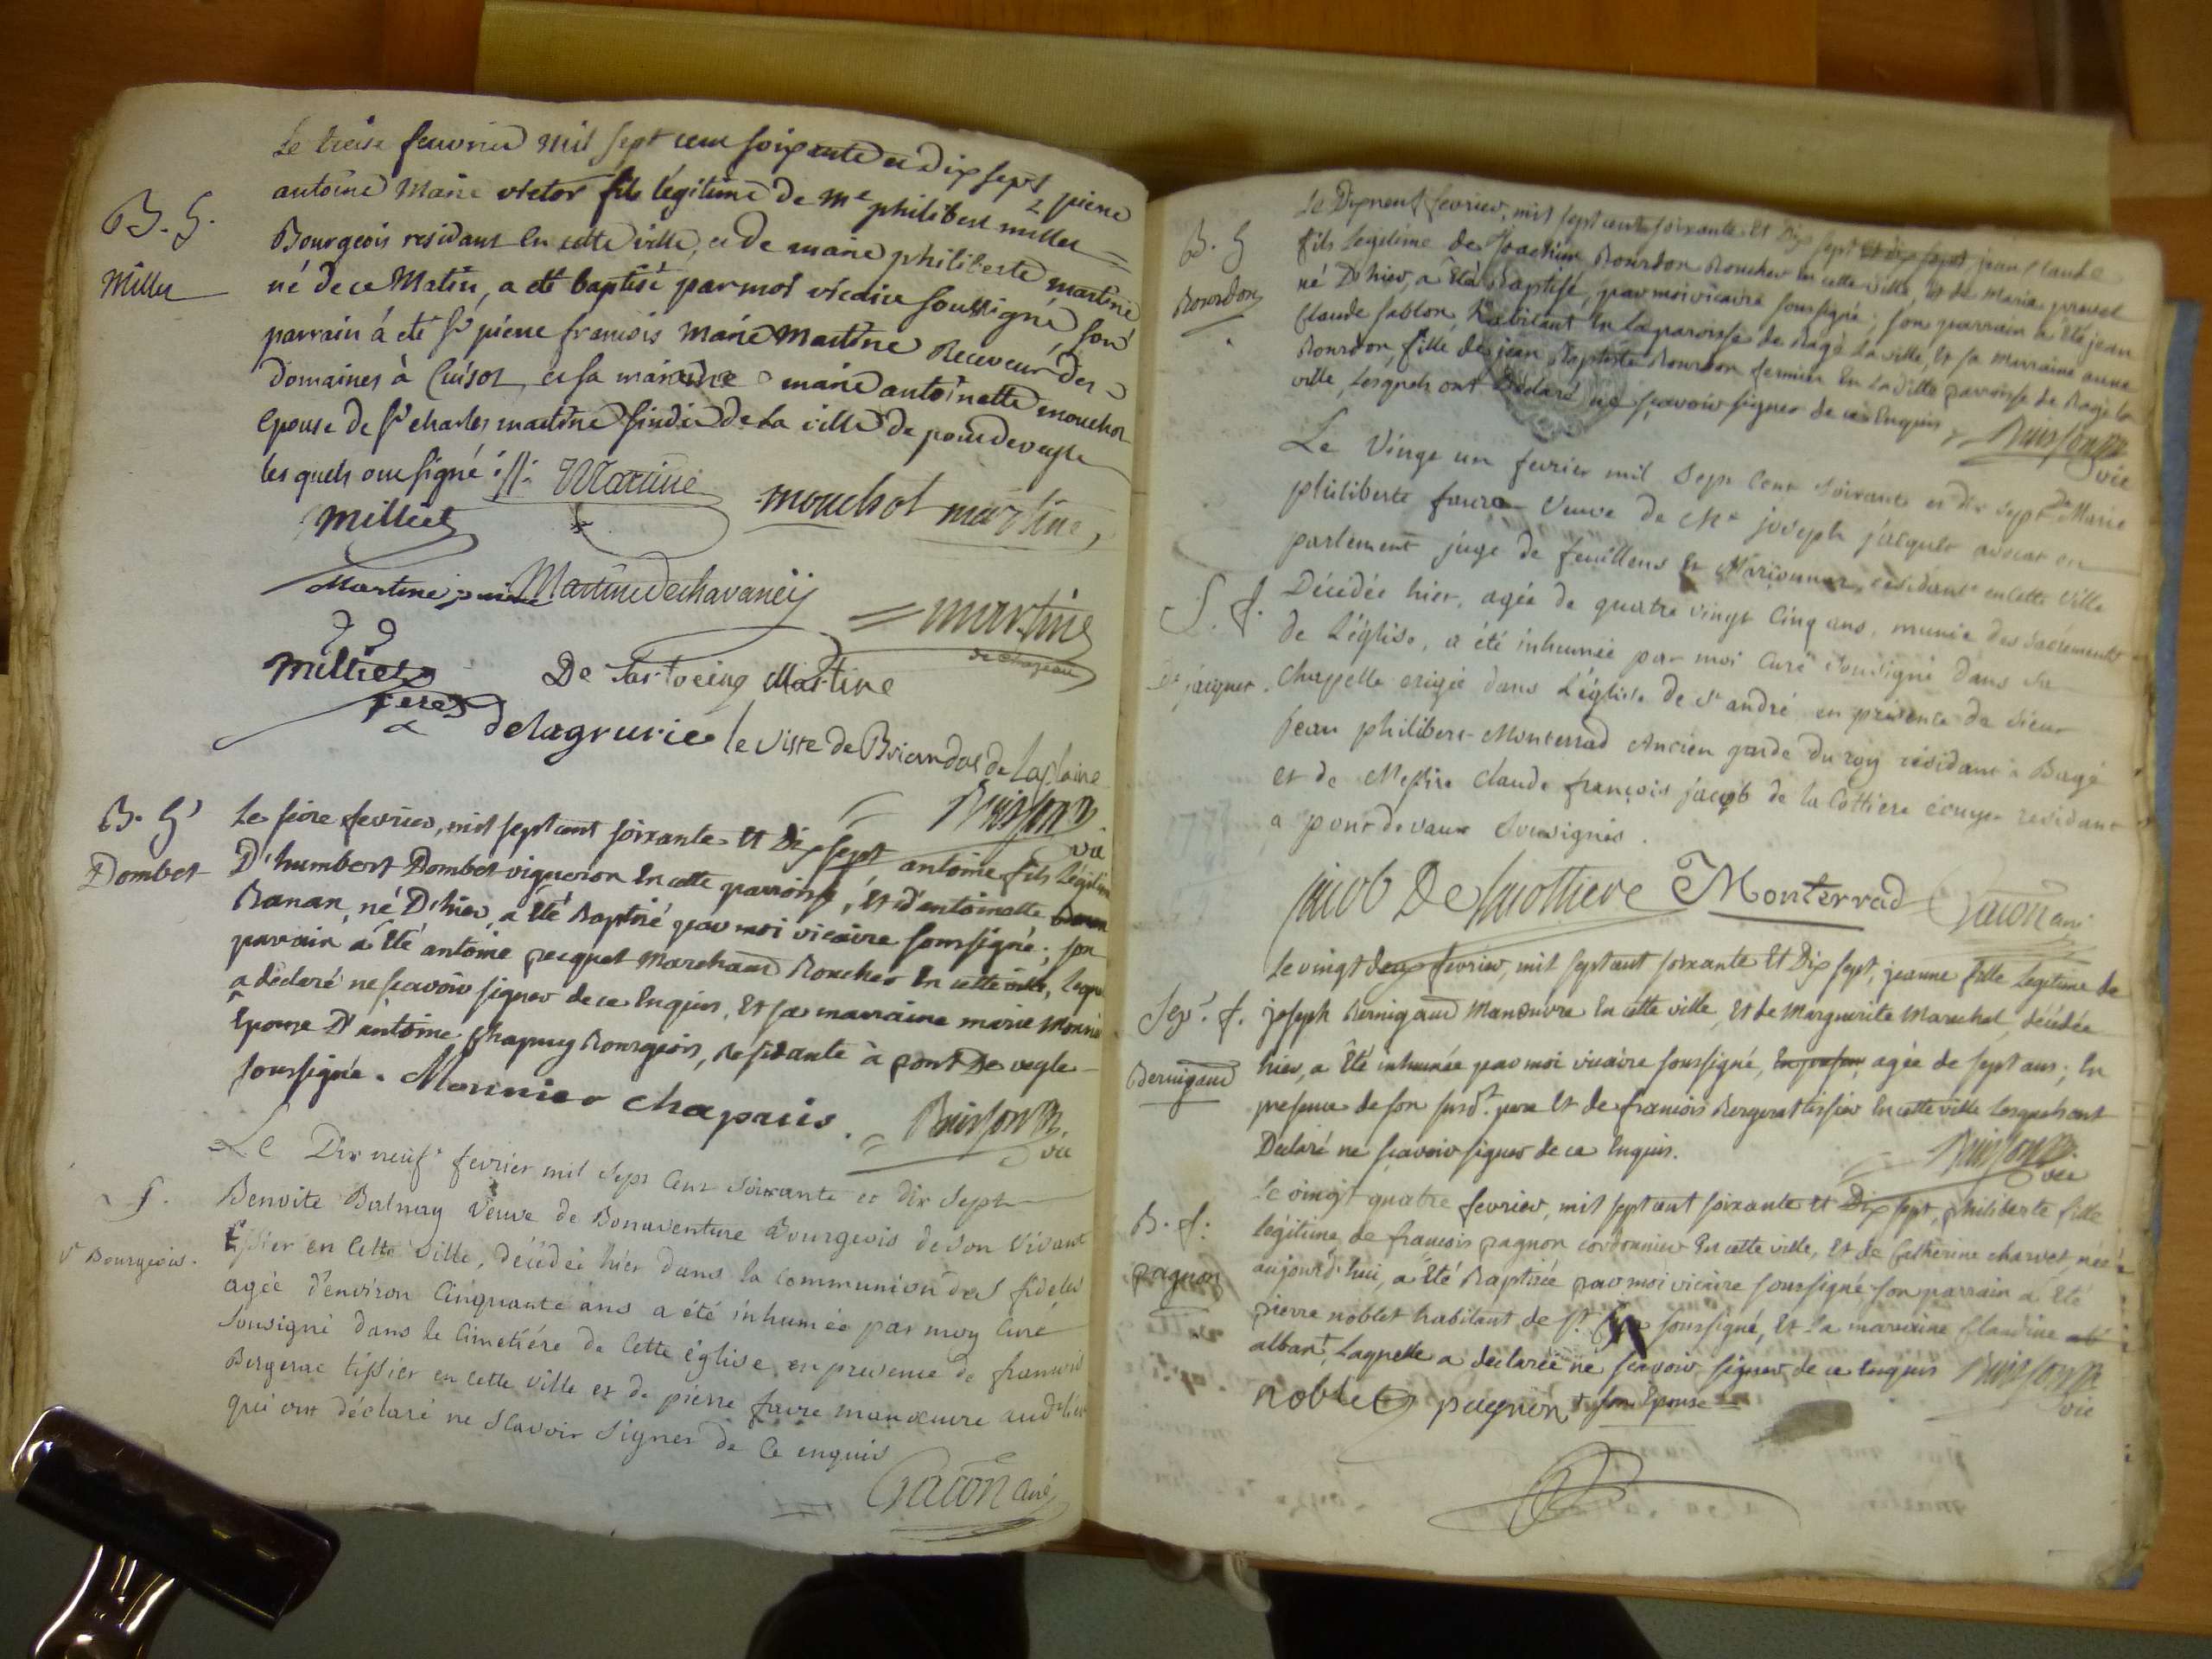 Le treise fevrier mil sept cens soixante et dix sept pierre
antoine marie victor fils légitime de Me philibert milliet
B. G.
Milliet
Bourgeois residant en cette ville, et de marie philiberte martine
né de ce Matin, a été baptisé par moi vicaire soussigné, son
parrain a été Sr pierre francois Marie Martine Receveur des
domaines à Cuisot et sa maraine marie antoinette mouchot
epouse de Sr charles martine sindic de la ville de pondevesle
les quels ont signé
Martine
mouchot martine
Milliet
Martine Martine dechavaneij
martine
de chazeau
Milliet
De Martine
pere
delagrurie le Viste de Briandas de Laplaine
Buisson
vic
B. G
Dombet
Le seize fevrier, mil sept cent soixante et Dix sept antoine fils Légitime
D'humbert Dombet vigneron En cette parroisse, Et d'entoinette
Banan, né D'hier, a Eté Baptisé par moi vicaire soussigné; son
parrain a Eté antoine pecquet Marchand Boucher En cette ville, Lequel
a déclaré ne scavoir signer de ce Enquis, Et sa marraine marie Monnier
Epouse D'antoine Chapuy Bourgeois, Residante à pont De vesle
soussigné. Monnier chapuis.
Buisson
vic
Le Dix neuf fevrier mil Sept Cens soixante et dix Sept
S.
Ve Bourgeois.
Benoite Balnay Veuve de Bonaventure Bourgeois de son vivant
tissier en Cette ville, décédée hier dans la Communion des fideles
agée d'environ Cinquante ans a été inhumée par moy Curé
Sousigné dans le Cimetiére de Cette église en presence de francois
Bergerac tissier en cette ville et de pierre favre manœuvre aud. lieu
qui ont déclaré ne scavoir signer de Ce enquis
Gacon Curé
Le Dix neuf fevrier, mil sept cent soixante Et Dix sept jean Claude
B. G
Bourdon
fils Legitime de Joachim Bourdon Boucher En cette ville, Et de Marie
né D'hier, a Eté Baptisé, par moi vicaire soussigné; son parrain a Eté jean
Claude sablon, habitant En la paroisse de Bagé La ville, Et sa marraine anne
Bourdon, fille de jean Baptiste Bourdon fermier En Laditte paroisse de Bagé la
ville, Lesquels ont Déclaré ne scavoir signer de ce Enquis
Buisson
vic
Le Vingt un fevrier mil Sept Cent soixante et dix sept De Marie
philiberte favre Veuve de Mr joseph jacquet avocat en
parlement juge de feuillens Et residante en Cette ville
S. f.
De jacquet.
Décédée hier, agée de quatre vingt Cinq ans, munie des sacrements
de L'église, a été inhumée par moi Curé sousigné dans sa
Chappelle erigée dans L'église de st andré en présence de sieur
jean philibert Monterrad Ancien garde du roy résidant à Bagé
et de Messire Claude françois jacob de la Cottiere écuyer residant
a pont de vaux sousignés.
jacob De Lacottiere Monterrad Gacon curé
Le vingt deux fevrier, mil sept cent soixante Et Dix sept, jeanne fille Legitime de
Sep. f.
Bernigaud
joseph Bernigaud Manœuvre En cette ville, Et de Marguerite Marechal, décédée
hier, a Eté inhumée par moi vicaire soussigné, agée de sept ans; En
presence de son susdt. pere Et de francois Bergerat tissier En cette ville Lesquels ont
Declaré ne scavoir signer de ce Enquis.
Buisson
vic
Le vingt quatre fevrier, mil sept cent soixante et Dix sept, philiberte fille
B. f.
pagnon
légitime de francois pagnon cordonnier En cette ville, Et de Catherine charvet, née
aujourd'hui, a Eté Baptisée par moi vicaire soussigné son parrain a Eté
pierre noblet habitant de St. soussigné, Et La marraine Claudine
albant, Laquelle a declarée ne scavoir signer de ce Enquis
Buisson
vic
noblet pagnon + son Epouse